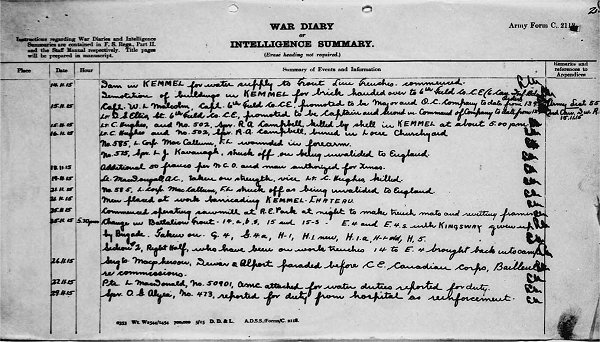 WAR DIARY
or
INTELLIGENCE SUMMARY.
(Erase heading not required.)
Army Form C. 2118.
Instructions regarding War Diaries and Intelligence
Summaries are contained in F. S. Regs., Part II.
and the Staff Manual respectively. Title pages
will be prepared in manuscript.
Place Date Hour Summary of Events and Information Remarks and references to Appendices
14.11.15 Dam in KEMMEL for water supply to front line trenches commenced.
Demolition of buildings in KEMMEL for brick handed over to 6th Field Co. C.E.
15.11.15 Capt. W. L. Malcolm, Capt. 6th Field Co. C.E., promoted to be Major and O.C. Company to date from
Lt. Ellis, Lt. 6th Field Co. C.E., promoted to be Captain and Second in Command of Company to date from
15.11.15 Lt. C. Hughes, and No. 502, Spr. R. A. Campbell, killed by shell in KEMMEL at about 5.00 pm
16.11.15 Lt. C. Hughes and No. 502, Spr. R. A. Campbell, buried in Locre Churchyard
No. 585, L. Corp. MacCallum, wounded in forearm.
No. 525, Spr. L. J. Kavanagh, struck off on being invalided to England
18.11.15 Additional 50 francs per N.C.O. and man authorized for Xmas.
19.11.15 Lt. MacDougal, A.C. taken on strength, vice Lt. C. Hughes killed.
21.11.15 No. 585, L. Corp. MacCallum, struck off as being invalided to England.
Men placed at work barricading KEMMEL-CHATEAU.
25.11.15 Commenced operating sawmill at R.E. Park at night to make trench mats and
25.11.15 5.30pm Change in Battalion front - 14, 14 S, 15 and 15-S. E.4 and E.4.S with KINGSWAY given up
by Brigade. Taken on G.4, G.4.a, H-1, H.1 new, H.1.a, H-1 old, H, 5.
Section 2, Right Half, who have been on work trenches 14 to E.4 brought back into camp
26.11.15 Sergts Macpherson, Dewar & Alport paraded before C.E. Canadian Corps, Bailleul
re commissions.
27.11.15 Pte. L. MacDonald, No. 50901, AMC attached for water duties reported for duty.
29.11.15 Spr. O. S. Algie, No. 473, reported for duty from hospital as reinforcement.
D. D. & L. A.D.S.S./Forms/C. 2118.